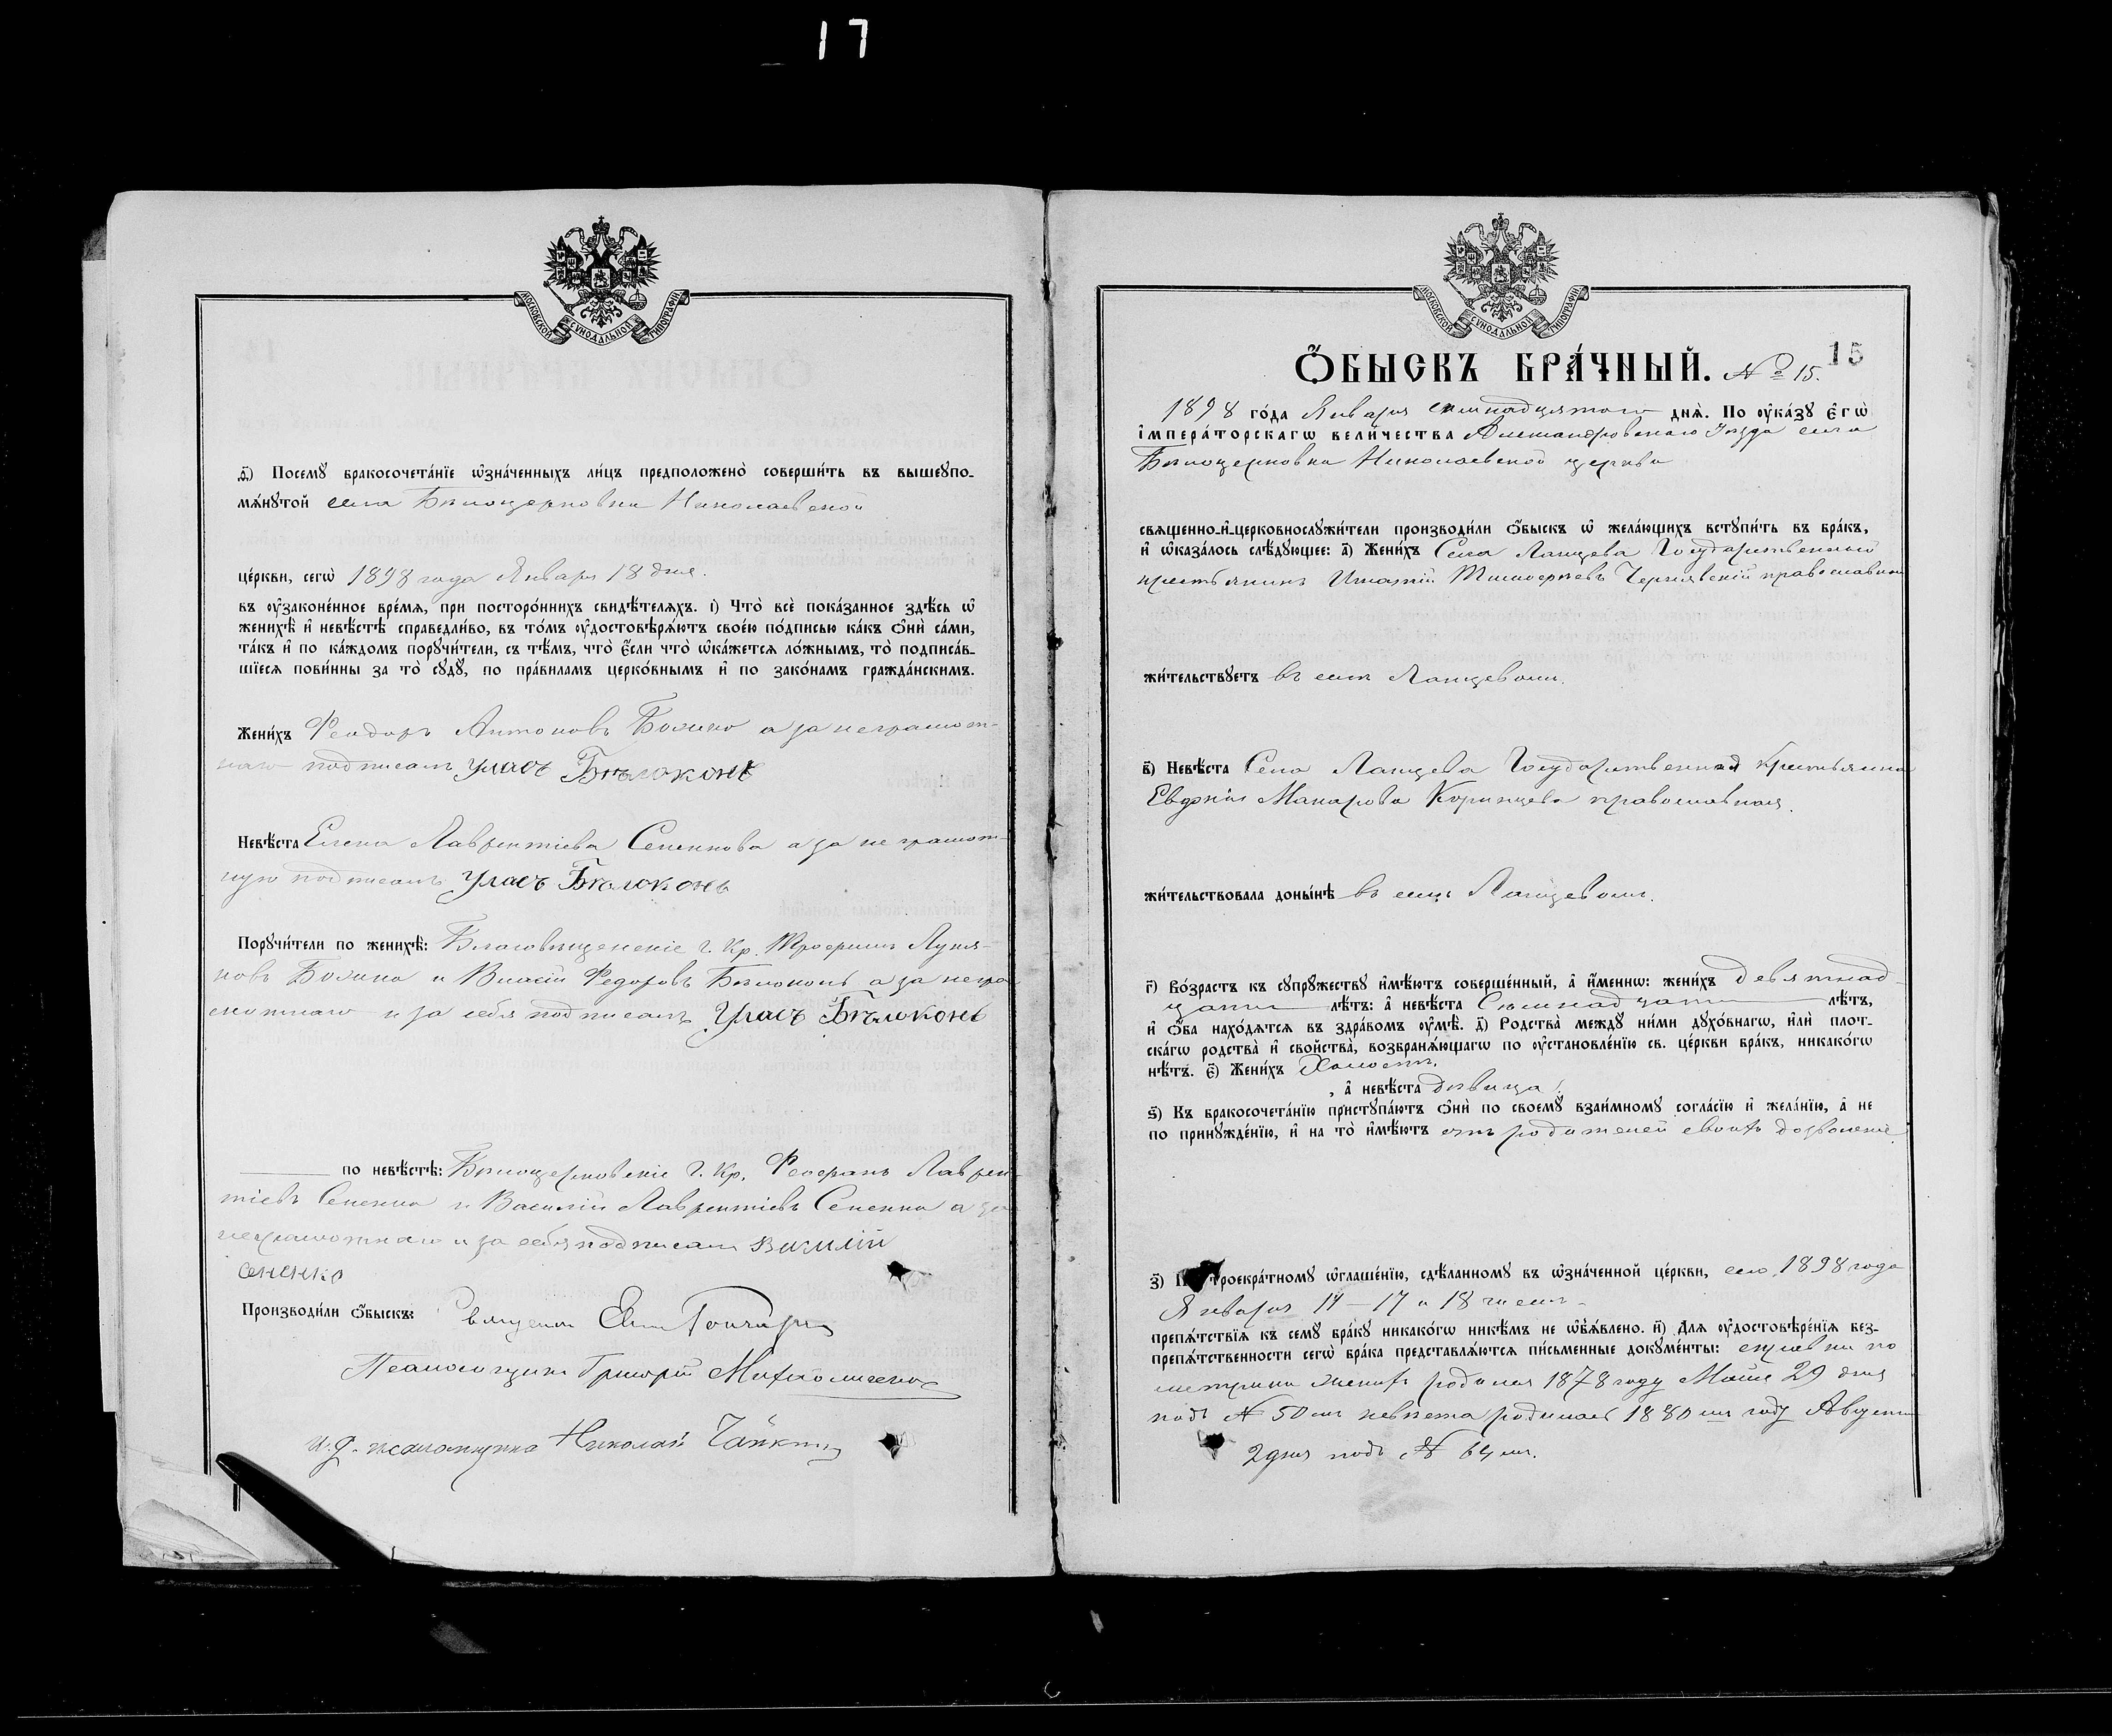 17
МОСКОВСКОЙ СѴНОДАЛЬНОЙ ТИПОГРАФІИ
д҃і) Посемꙋ̀ бракосочета́нїе ѡ҆зна́ченныхъ ли́цъ предположено̀ соверши́ть въ вышеꙋпо-
мѧ́нꙋтой села Бѣлоцерковки Николаевской
це́ркви, сегѡ̀ 1898 года Января 18 дня.
въ ᲂу҆зако́ненное вре́мѧ, при посторо́ннихъ свидѣ́телѧхъ. і҃) Что̀ всѐ пока́занное здѣ́сь ѡ҆
женихѣ̀ и҆ невѣ́стѣ справедли́во, въ то́мъ ᲂу҆достовѣрѧ́ютъ свое́ю по́дписью ка́къ ѻ҆нѝ са́ми,
та́къ и҆ по ка́ждомъ порꙋчи́тели, съ тѣ́мъ, что̀ є҆́сли что̀ ѡ҆ка́жетсѧ ло́жнымъ, то̀ подписа́в-
шїесѧ пови́нны за то̀ сꙋдꙋ̀, по пра́виламъ церко́внымъ и҆ по зако́намъ гражда́нскимъ.
Жени́хъ Феодоръ Антоновъ Божко а за неграмот-
наго подписалъ Уласъ Бѣлоконь
Невѣ́ста Елена Лаврентіева Сененкова а за не грамот-
ную подписалъ Уласъ Бѣлоконь
Порꙋчи́тели по женихѣ̀: Благовѣщенскіе Г. Кр. Трофимъ Лукя-
новъ Божко и Власій Федоровъ Бѣлоконь а за негра
мотнаго и за себя подписалъ Уласъ Бѣлоконь
по невѣ́стѣ: Бѣлоцерковскіе Г. Кр. Феофанъ Лаврен
тіевъ Сененко и Василій Лаврентіевъ Сененко а за
неграмотнаго и за себя подписалъ Василій
Сененко
Производи́ли ѻ҆́быскъ: Священникъ
Псаломщикъ Григорій
и. д. псаломщика Николай
МОСКОВСКОЙ СѴНОДАЛЬНОЙ ТИПОГРАФІИ
15
Ѻ҆́БЫСКЪ БРА́ЧНЫЙ. № 15.
1898 го́да Января семнадцятого днѧ̀. По ᲂу҆ка́зꙋ Є҆гѡ̀
І҆мпера́торскагѡ вели́чества Александровскаго Уѣзда села
Бѣлоцерковки Николаевской церкви
свѧщенно-и҆-церковнослꙋжи́тели производи́ли ѻ҆́быскъ ѡ҆ жела́ющихъ встꙋпи́ть въ бра́къ,
и҆ ѡ҆каза́лось слѣ́дꙋющее: а҃) Жени́хъ Села Ланцева Государственный
крестьянинъ Игнатій Тимофеевъ Чернявскій православный
жи́тельствꙋетъ въ селѣ Ланцевомъ.
в҃) Невѣ́ста Села Ланцева Государственная Крестьянка
Евдокія Макарова Коринцева православная.
жи́тельствовала доны́нѣ въ селѣ Ланцевомъ.
г҃) Во́зрастъ къ сꙋпрꙋ́жествꙋ и҆мѣ́ютъ соверше́нный, а҆ и҆́менно: жени́хъ девятнад-
цати лѣ́тъ: а҆ невѣ́ста Семнадцати лѣ́тъ,
и҆ ѻ҆́ба нахо́дѧтсѧ въ здра́вомъ ᲂу҆мѣ̀. д҃) Родства̀ междꙋ̀ ни́ми дꙋхо́внагѡ, и҆лѝ пло́т-
скагѡ родства̀ и҆ свойства̀, возбранѧ́ющагѡ по ᲂу҆становле́нїю св. це́ркви бра́къ, никако́гѡ
нѣ́тъ. є҃) Жени́хъ Холостъ.
, а҆ невѣ́ста дѣвица.
ѕ҃) Къ бракосочета́нїю пристꙋпа́ютъ ѻ҆нѝ по своемꙋ̀ взаи́мномꙋ согла́сїю и҆ жела́нїю, а҆ не
по принꙋжде́нїю, и҆ на то̀ и҆мѣ́ютъ отъ родителей своихъ дозволеніе.
з҃) По троекра́тномꙋ ѡ҆глаше́нїю, сдѣ́ланномꙋ въ ѡ҆зна́ченной це́ркви, сего 1898 года
Января 14 – 17 и 18 чиселъ
препѧ́тствїѧ къ семꙋ̀ бра́кꙋ никако́гѡ никѣ́мъ не ѡ҆б̾ѧ́влено. и҃) Длѧ ᲂу҆достовѣре́нїѧ без-
препѧ́тственности сегѡ̀ бра́ка представлѧ́ютсѧ пи́сьменные докꙋме́нты: справки по
метрики женихъ родился 1878 году Маія 29 дня
подъ № 50 мъ невѣста родилась 1880 мъ году Августа
2 дня подъ № 64 мъ.